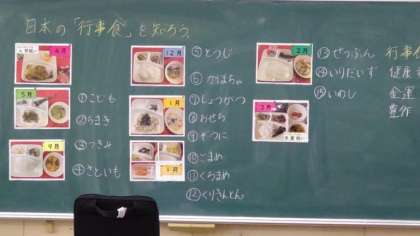 日本の「行事食」を知ろう。
4月
5月
①こども
②ちまき
9月
③つきみ
④さといも
12月
⑤とうじ
⑥かぼちゃ
1月
⑦しょうがつ
⑧おせち
⑨ぞうに
⑩ごまめ
⑪くろまめ
1月
⑫くりきんとん
2月
⑬せつぶん
⑭いりだいず
⑮いわし
3月
行事食
健康
金運
豊作